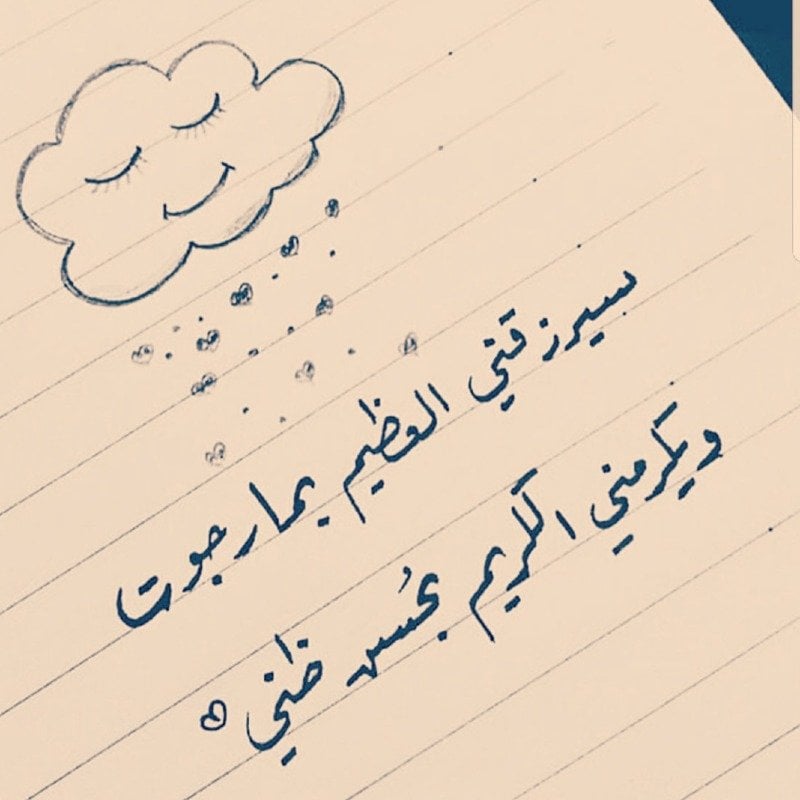 سيرزقني العظيم بما رجوت
ويكرمني الكريم بحُسن ظني